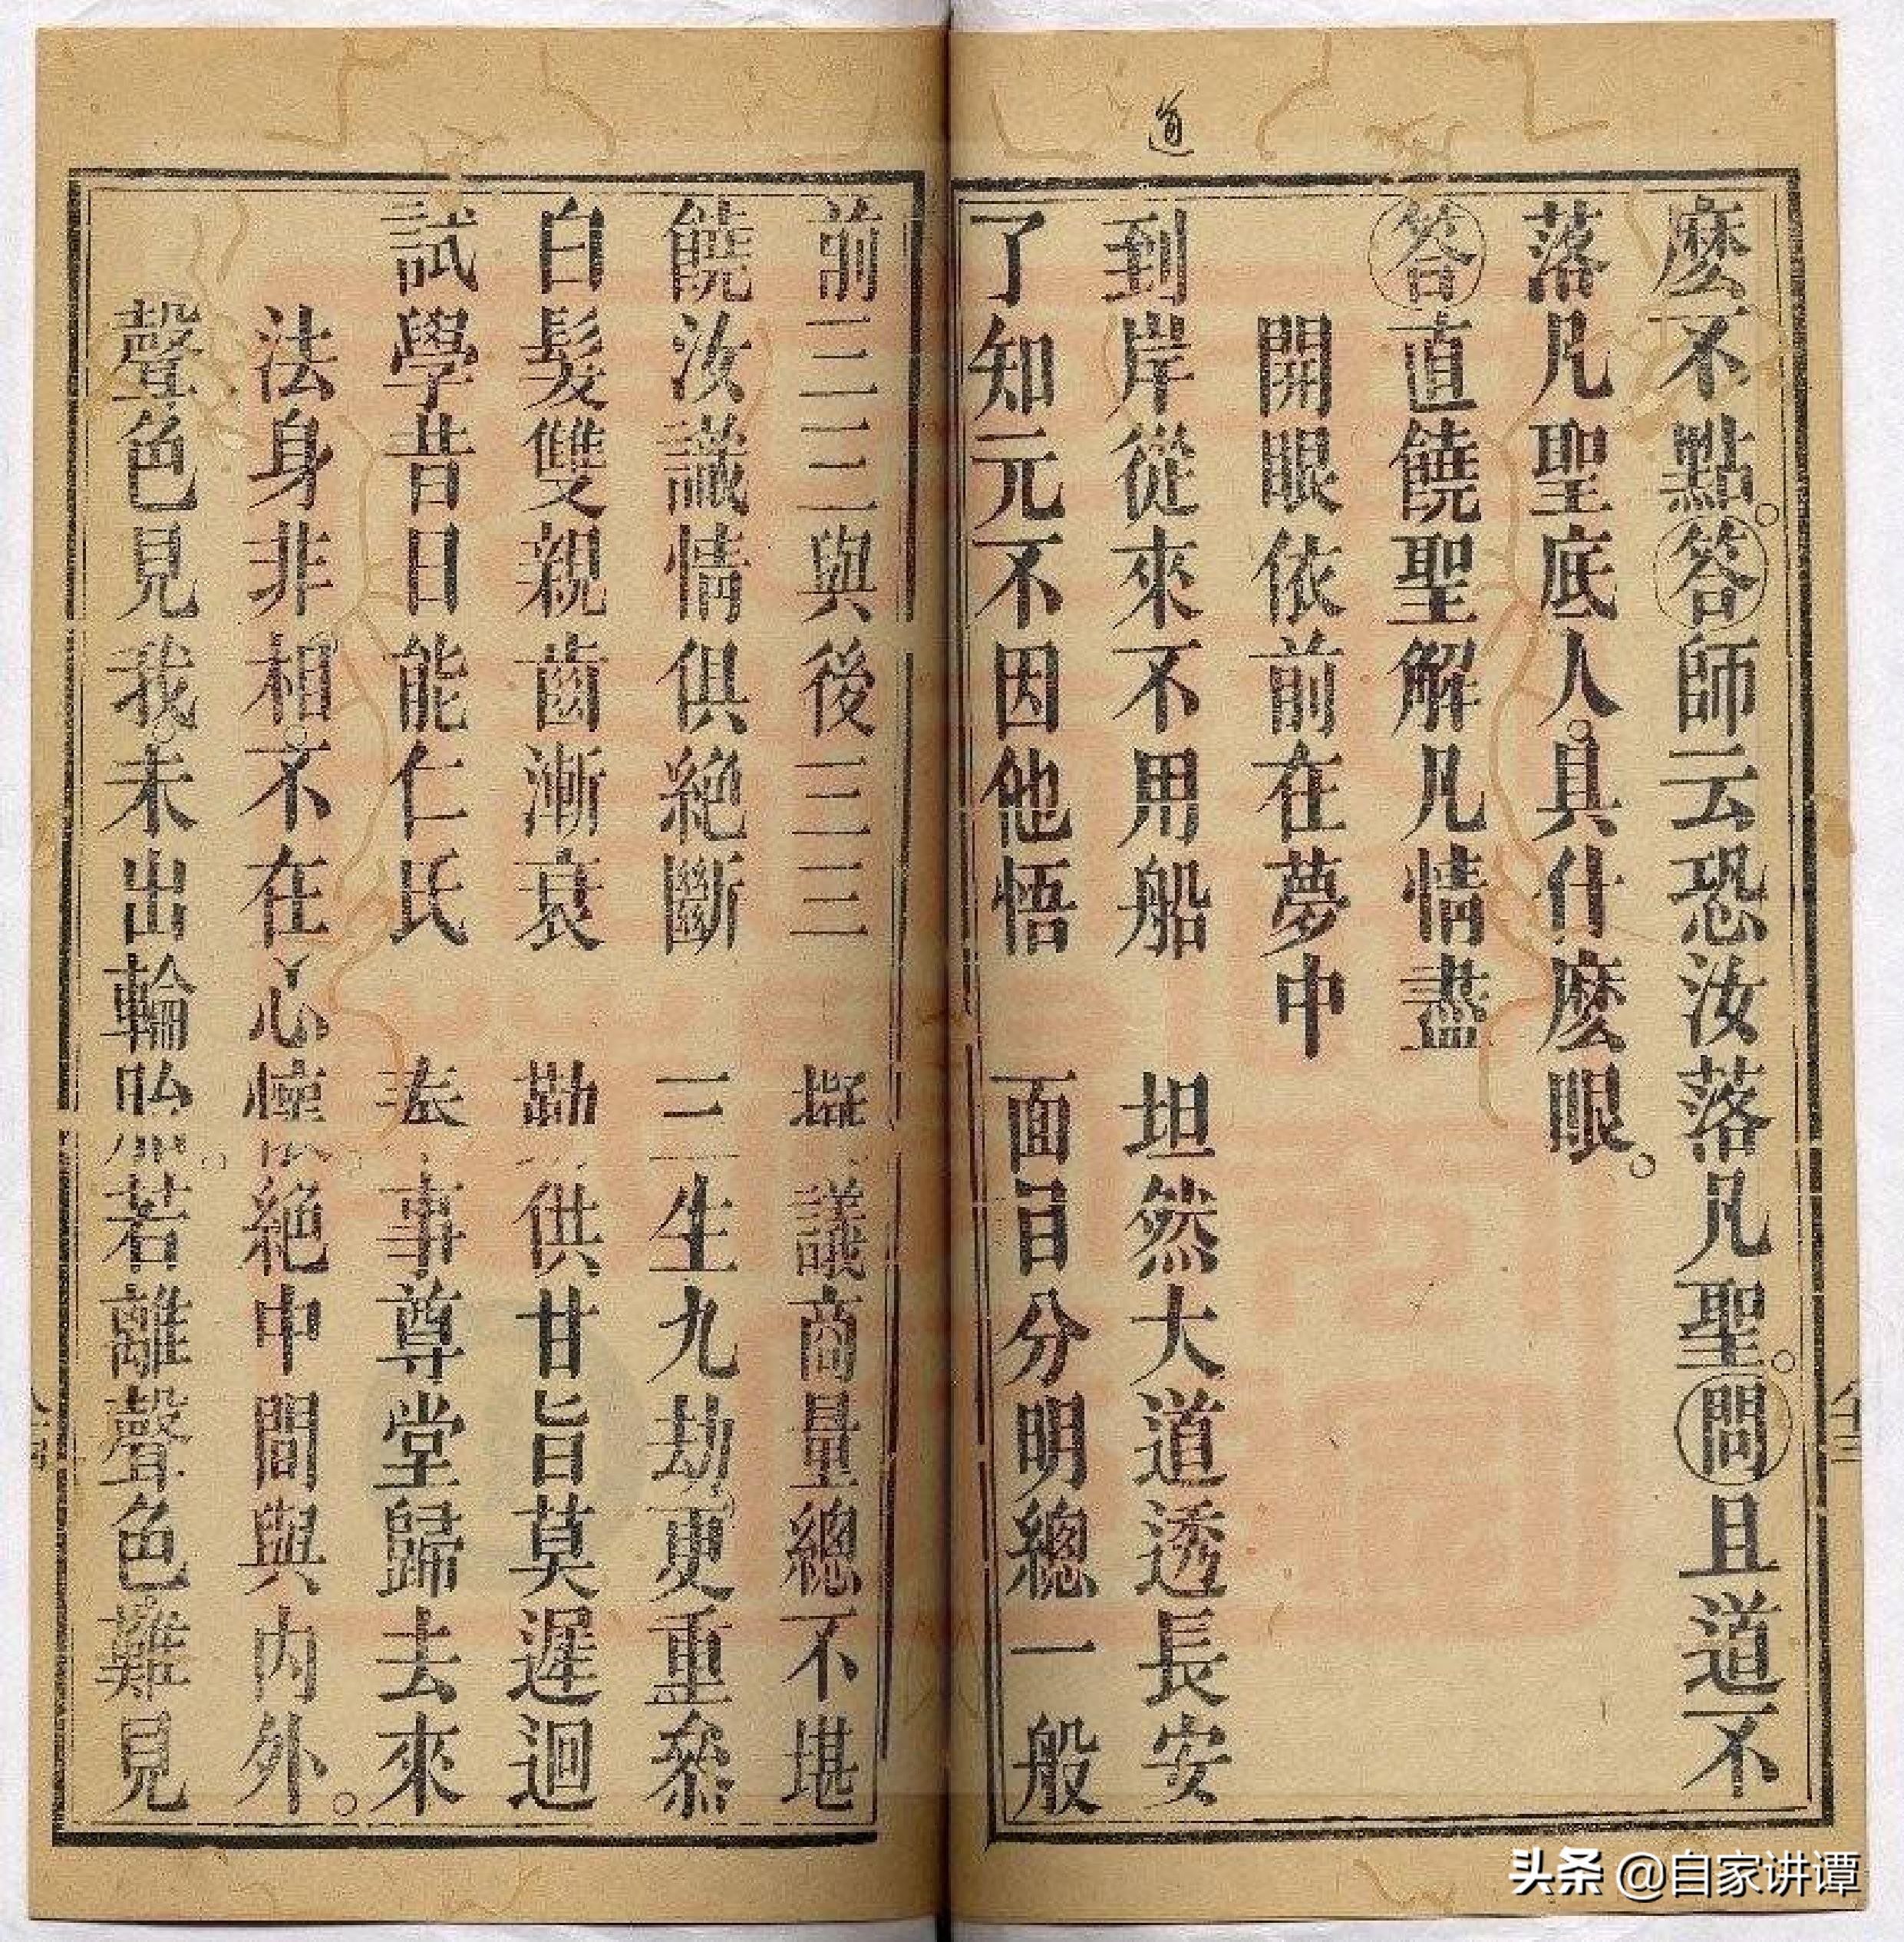 道
麽不點。答師云恐汝落凡聖。問且道不
落凡聖底人。具什麽眼。
答直饒聖解凡情盡
開眼依前在夢中
到岸從來不用船　坦然大道透長安
了知元不因他悟　面目分明總一般
前三三與後三三　擬議商量總不堪
饒汝識情俱絶斷　三生九劫更重叅
白髮雙親齒漸衰　勤供甘旨莫遲迴
試學昔日能仁氏　事尊堂歸去來
法身非相。不在心絶中間與內外。
聲色見我。未出輪。若離聲色難見
头条 @自家讲谭